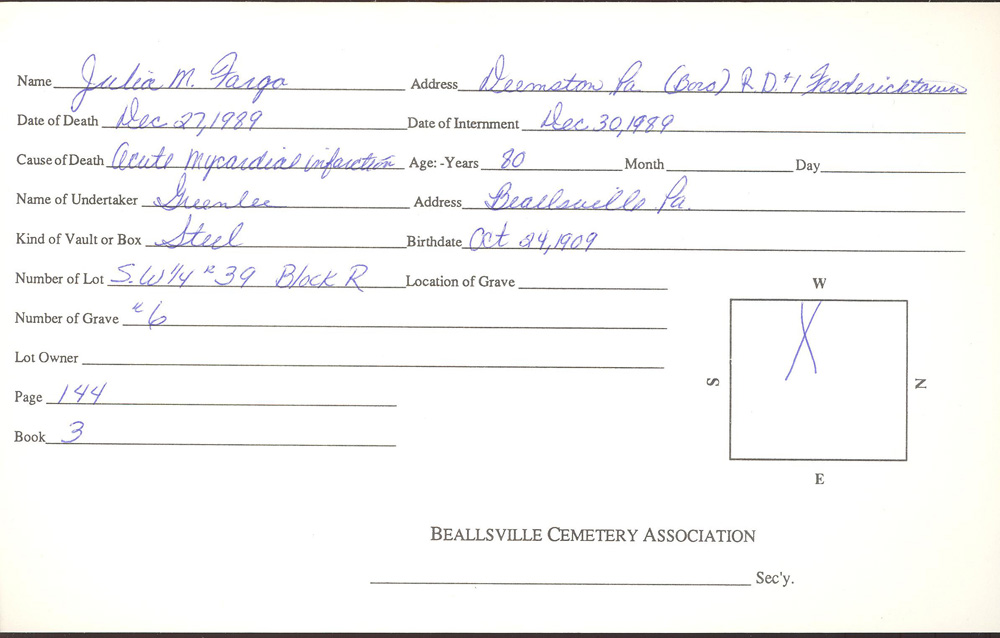 Name Julia M. Fargo Address Deemston Pa. (Boro) R.D.#1 Fredericktown
Date of Death Dec 27, 1989 Date of Internment Dec 30, 1989
Cause of Death Acute Mycardial infarction Age: -Years 80 Month Day
Name of Undertaker Greenlee Address Beallsville Pa.
Kind of Vault or Box Steel Birthdate Oct 24, 1909
Number of Lot S.W 1/4 # 39 Block R Location of Grave
W
Number of Grave # 6
X
Lot Owner
S N
Page 144
Book 3
E
BEALLSVILLE CEMETERY ASSOCIATION
Sec'y.